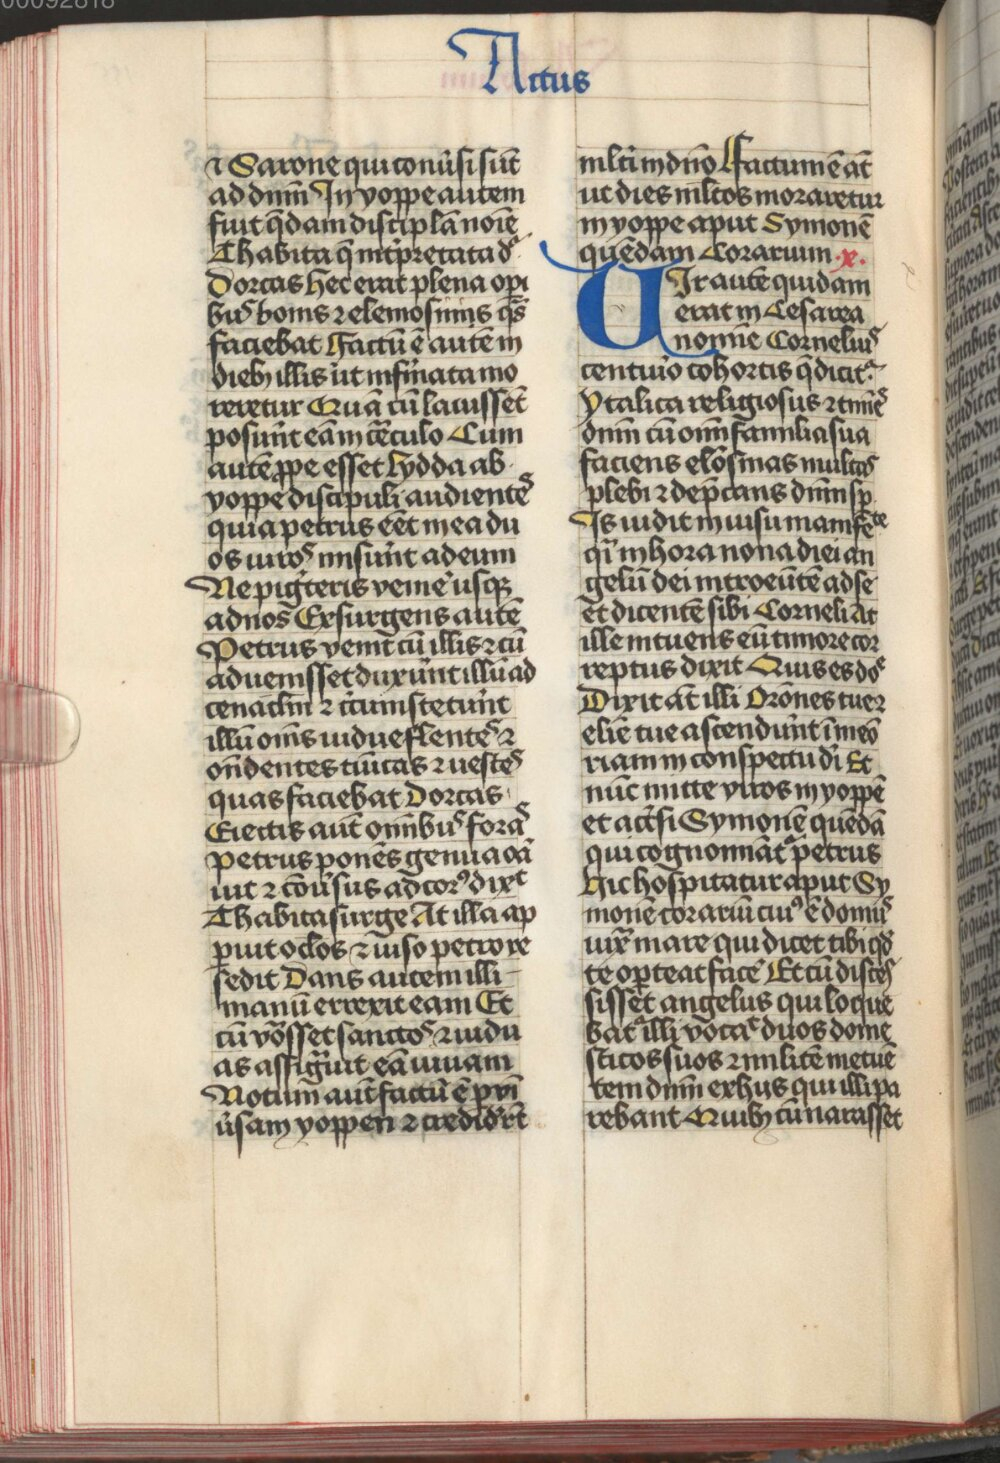 Actus
⁊ Sarone qui conůsi sūt
ad dnm̄ In yoppe autem
fuit q̄dam discipl̄a noīe
Thabita q̄ int̄pretata dr̄
Dorcas hec erat plena opi
bus bonis ⁊ elemosinis q̄s
faciebat Factū ē autē in
dieb illis ut infirmata mo
reretur Quā cū lauissēt
posuīnt eā in cēculo Cum
autē ꝓpe esset lydda ab
yoppe discipuli audientes
quia petrus eēt in ea du
os uiros misūnt ad eum
Ne pigriteris venire usqꝫ
ad nos Exsurgens autē
Petrus venit cū illis ⁊ cū
aduenisset duxūnt illū ad
cenaclm̄ ⁊ circūstetūnt
illū om̄s uidue flentes ⁊
on̄dentes tūicas ⁊ uestes
quas faciebat Dorcas
Eiectis aut̄ omībus foras
Petrus ponēs genua oā
uit ⁊ cōůsus ad corꝰ dixit
Thabita surge At illa ap
puit oclos ⁊ uiso petro re
sedit Dans autem illi
manū errexit eam Et
cū vōsset sanctos ⁊ uidu
as assig̃uit eā uiuam
Notum aut̄ factū ē ꝑ vni
ůsam yoppen ⁊ credider̄t
ml̄ti in dn̄o Factum ē at̄
ut dies ml̄tos moraretur
in yoppe aput Symonē
quēdam Corarium .x.
Uir autē quidam
erat in Cesarea
nomīe Cornelius
centurio cohortis q̄ dicitr̄
ytalica religiosus ⁊ timēs
dnm̄ cū omī familia sua
faciens elōsinas multas
plebi ⁊ dep̄cans dnm̄ sp̄
Is uidit in uisu manifeste
q̄si in hora nona diei an
gelū dei introeūtē ad se
et dicentē sibi Corneli At
ille intuens eū timore cor
reptus dixit Quis es dn̄e
Dixit at̄ illi Orōnes tue ⁊
elīe tue ascendūnt ī meō
riam in conspectu dī Et
nūc mitte viros in yoppē
et accsi Symonē quēdā
qui cognominat̃ petrus
hic hospitatur aput Sy
monē corariū cuiꝰ ē domus
iuxͣ mare qui dicet tibi qd̄
te oꝑteat face Et cū disces
sisset angelus qui loque
batr̄ illi vocat duos dome
sticos suos ⁊ militē metuē
tem dnm̄ ex hiis qui illi pa
rebant Quib cū narasset